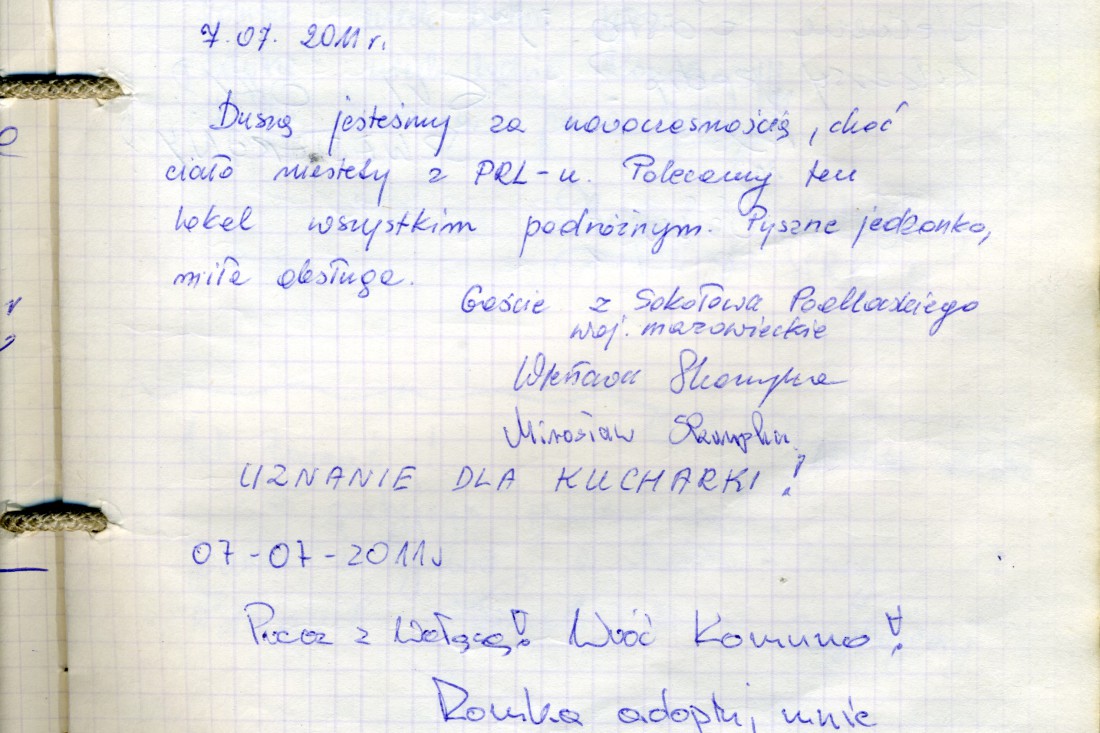 7.07. 2011 r.
Duszą jesteśmy za nowoczesnością, choć
ciało niestety z PRL-u. Polecamy ten
lokal wszystkim podróżnym. Pyszne jedzonko,
miła obsługa.
Goście z Sokołowa Podlaskiego
woj. mazowieckie
Mirosław
UZNANIE DLA KUCHARKI!
07-07-2011
Precz z Wołgą! Wróć Komuno!
Romka adoptuj mnie